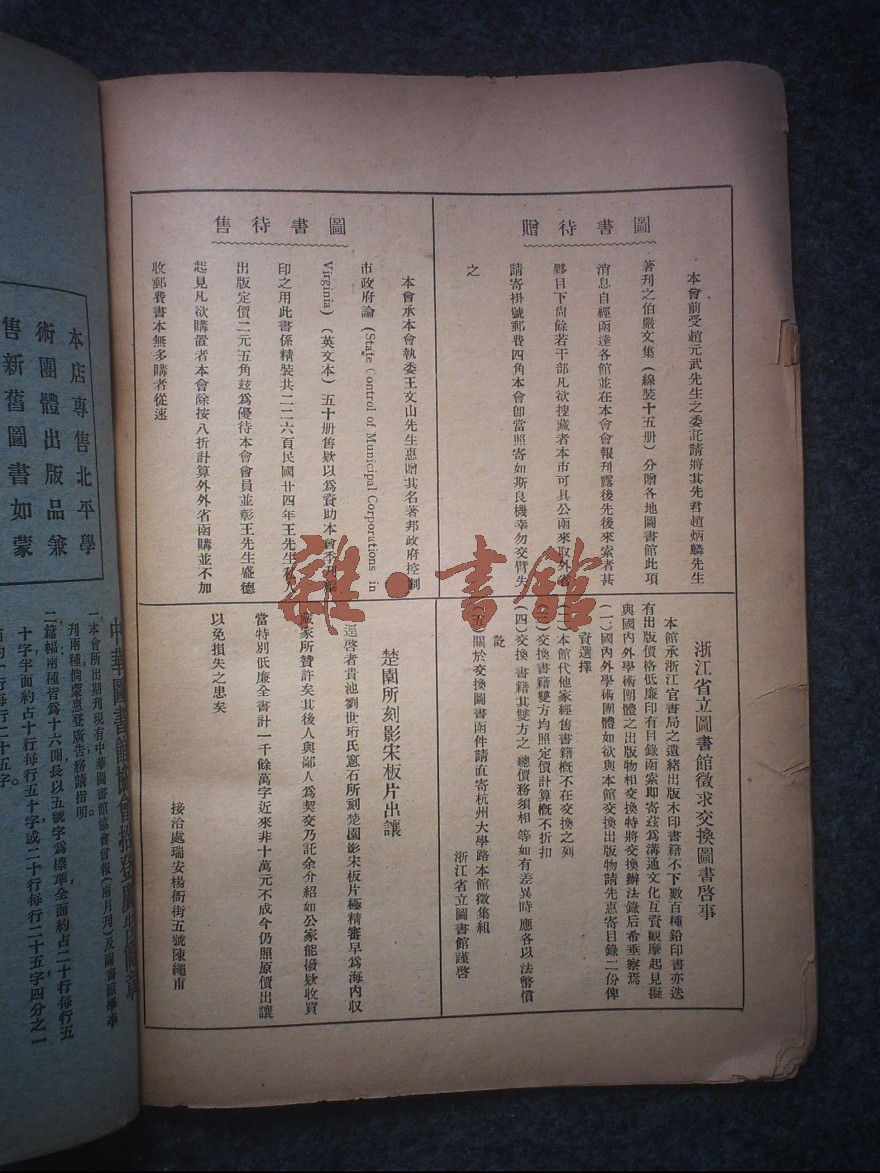 圖書待贈
本會前受趙元武先生之委託請將其先君趙炳麟先生
著刊之伯嚴文集（線裝十五册）分贈各地圖書館此項
消息自經函達各館並在本會會報刊露後先後來索者甚
夥目下尚餘若干部凡欲搜藏者本市可具公函來取外省
請寄掛號郵費四角本會卽當照寄如斯良機幸勿交臂失
之
圖書待售
本會承本會執委王文山先生惠贈其名著邦政府控制
市政府論（State Control of Municipal Corporations in
Virginia）（英文本）五十册售欵以為資助本會季刊
印之用此書係精裝共二二六頁民國廿四年王先生私人
出版定價二元五角茲為優待本會會員並彰王先生盛德
起見凡欲購置者本會除按八折計算外外省函購並不加
收郵費書本無多購者從速
浙江省立圖書館徵求交換圖書啓事
本館承浙江官書局之遺緒出版木印書籍不下數百種鉛印書亦迭
有出版價格低廉印有目錄函索即寄茲為溝通文化互資觀摩起見擬
與國內外學術團體之出版物相交換特將交換辦法錄后希垂察焉
（一）國內外學術團體如欲與本館交換出版物請先惠寄目錄二份俾
資選擇
（二）本館代他家經售書籍概不在交換之列
（三）交換書籍雙方均照定價計算概不折扣
（四）交換書籍其雙方之總價務須相等如有差異時應各以法幣償
訖
（五）關於交換圖書函件請直寄杭州大學路本館徵集組
浙江省立圖書館謹啓
楚園所刻影宋板片出讓
逕啓者貴池劉世珩氏窻石所刻楚園影宋板片極精審早為海內收
藏家所贊許矣其後人與鄙人為契交乃託余介紹如公家能撥欵收買
當特別低廉全書計一千餘萬字近來非十萬元不成今仍照原價出讓
以免損失之患矣
接洽處瑞安楊衙街五號陳繩甫
本店專售北平學
術團體出版品兼
售新舊圖書如蒙
中華圖書館協會招登廣告簡章
一、本會所出期刊現有中華圖書館協會會報（兩月刊）及圖書館學季
刊兩種倘蒙惠登廣告務請指明。
二、篇幅兩種皆為十六開長以五號字為標準全面約占二十行每行五
十字半面約占十行每行五十字或二十行每行二十五字四分之一
雜·書館